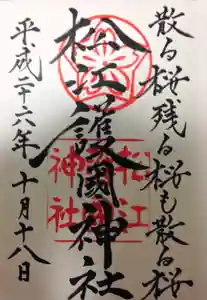 散る桜残る桜も散る桜
松江護國神社
平成二十六年十月十八日
松江
神社